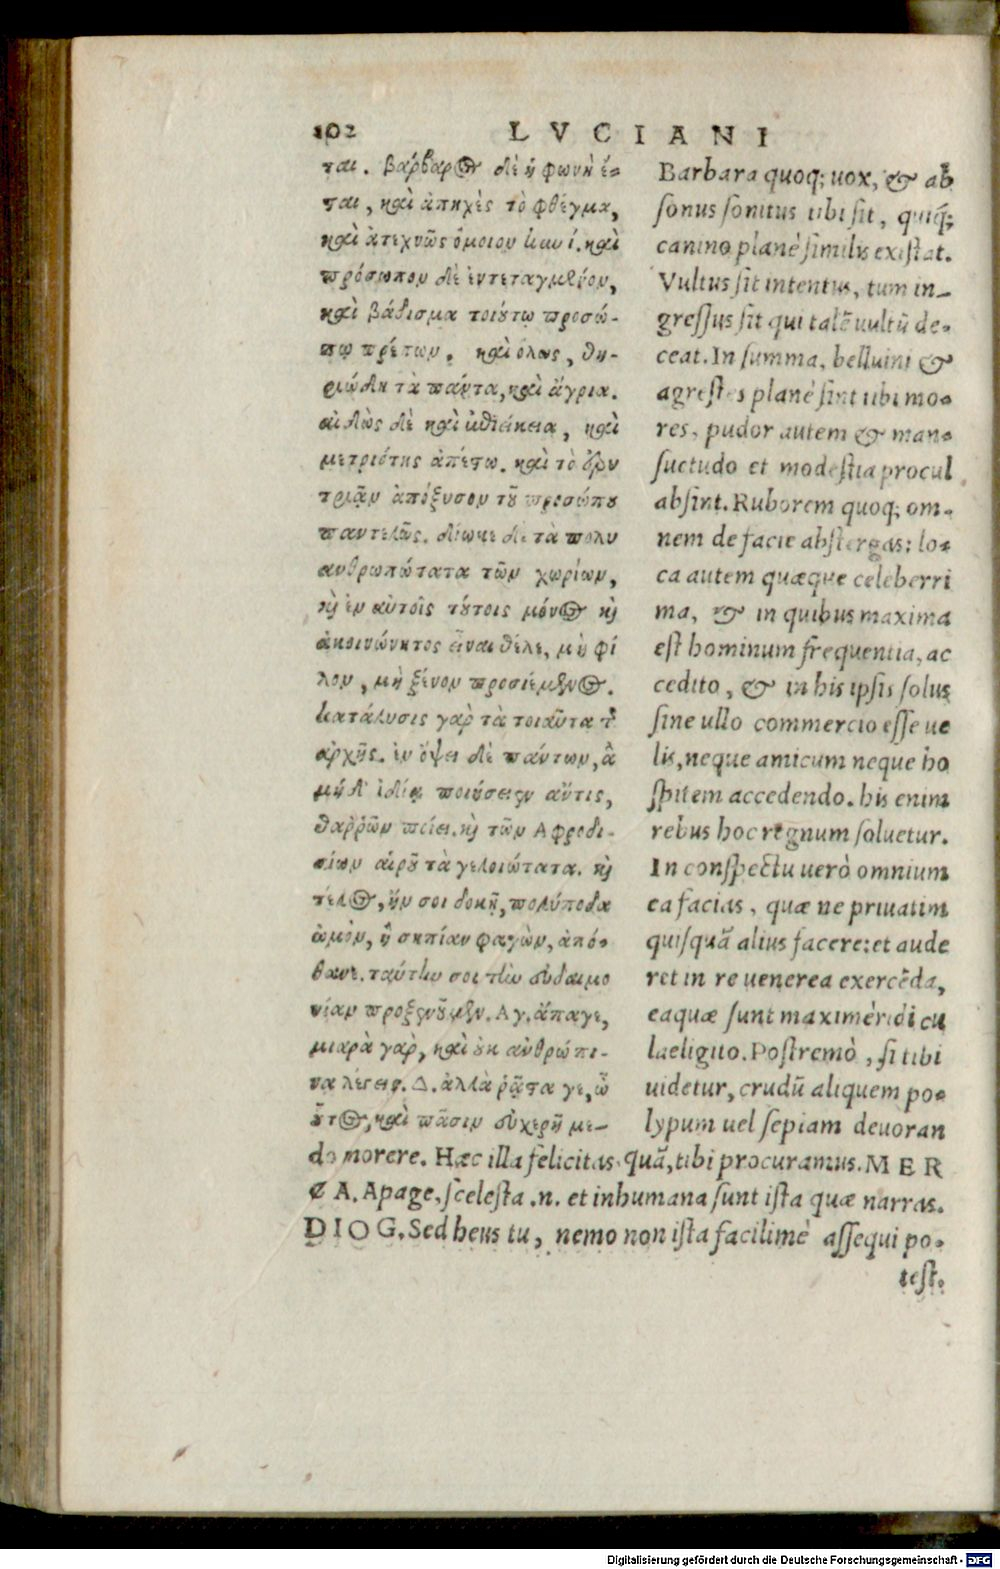 102 LVCIANI
ται. βάρβαρος δὲ ἡ φωνὴ ἔσ-
ται, καὶ ἀπηχὲς τὸ φθέγμα,
καὶ ἀτεχνῶς ὅμοιον κυνί. καὶ
πρόσωπον δὲ ἐντεταγμένον,
καὶ βάδισμα τοιούτῳ προσώ-
πῳ πρέπων. καὶ ὅλως, θη-
ριώδη τὰ πάντα, καὶ ἄγρια.
αἰδὼς δὲ καὶ ἐπιείκεια, καὶ
μετριότης ἀπέστω. καὶ τὸ ἐρυ
τριᾷν ἀπόξυσον τοῦ προσώπου
παντελῶς. δίωκε δὲ τὰ πολυ
ανθρωπότατα τῶν χωρίων,
καὶ ἐν αὐτοῖς τούτοις μόνος καὶ
ἀκοινώνητος εἶναι θέλε, μὴ φί
λον, μὴ ξένον προσιέμενος.
κατάλυσις γὰρ τὰ τοιαῦτα τῆς
ἀρχῆς. ἐν ὄψει δὲ πάντων, ἃ
μηδ' ἰδίᾳ ποιήσειεν ἄν τις,
θαῤῥῶν ποίει. καὶ τῶν Αφροδι-
σίων αἱροῦ τὰ γελοιώτατα. καὶ
τέλος, ἤν σοι δοκῇ, πολύποδα
ὠμὸν, ἢ σηπίαν φαγὼν, ἀπό-
θανε. ταύτην σοι τὴν εὐδαιμο
νίαν προξενοῦμεν. Αγ. ἄπαγε,
μιαρὰ γὰρ, καὶ οὐκ ἀνθρώπι-
να λέγεις. Δ. ἀλλὰ ῥᾷστα γε, ὦ
οὗτος, καὶ πᾶσιν εὐχερῆ με-
Barbara quoq; uox, & ab
sonus sonitus tibi sit, quiq;
canino planè similis existat.
Vultus sit intentus, tum in-
gressus sit qui talē uultū de-
ceat. In summa, belluini &
agrestes planè sint tibi mo-
res, pudor autem & man-
suetudo et modestia procul
absint. Ruborem quoq; om-
nem de facie abstergas: lo-
ca autem quæque celeberri
ma, & in quibus maxima
est hominum frequentia, ac
cedito, & in his ipsis solus
sine ullo commercio esse ue
lis, neque amicum neque ho
spitem accedendo. his enim
rebus hoc regnum soluetur.
In conspectu uerò omnium
ea facias, quæ ne priuatim
quisquā alius facere: et aude
ret in re uenerea exercēda,
eaquæ sunt maximè ridicu
la eligito. Postremò, si tibi
uidetur, crudū aliquem po-
lypum uel sepiam deuoran
do morere. Hæc illa felicitas quā, tibi procuramus. MER
CA. Apage, scelesta .n. et inhumana sunt ista quæ narras.
DIOG. Sed heus tu, nemo non ista facilimè assequi po-
test.
Digitalisierung gefördert durch die Deutsche Forschungsgemeinschaft - DFG